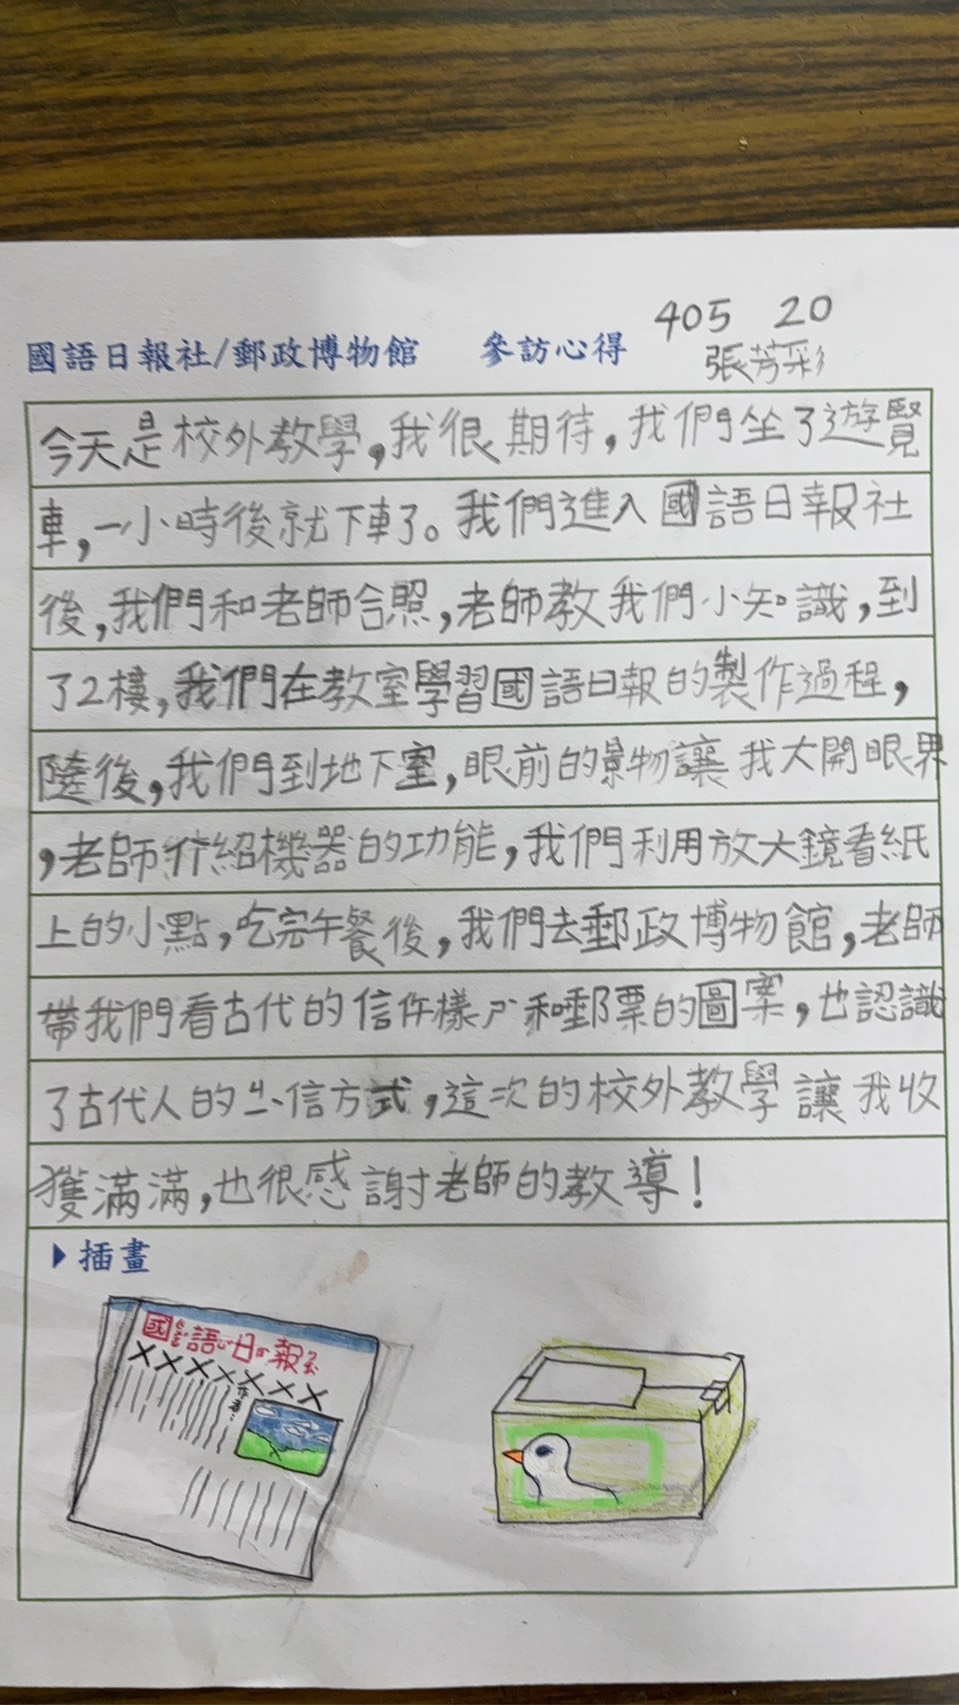 405 20
國語日報社/郵政博物館 參訪心得
張芳彩
今天是校外教學,我很期待,我們坐了遊覽
車,一小時後就下車了。我們進入國語日報社
後,我們和老師合照,老師教我們小知識,到
了2樓,我們在教室學習國語日報的製作過程,
隨後,我們到地下室,眼前的景物讓我大開眼界
,老師介紹機器的功能,我們利用放大鏡看紙
上的小點,吃完午餐後,我們去郵政博物館,老師
帶我們看古代的信件樣ㄕ和郵票的圖案,也認識
了古代人的 信方式,這次的校外教學讓我收
獲滿滿,也很感謝老師的教導!
▶插畫
國語日報
XXXXXXX
作者: